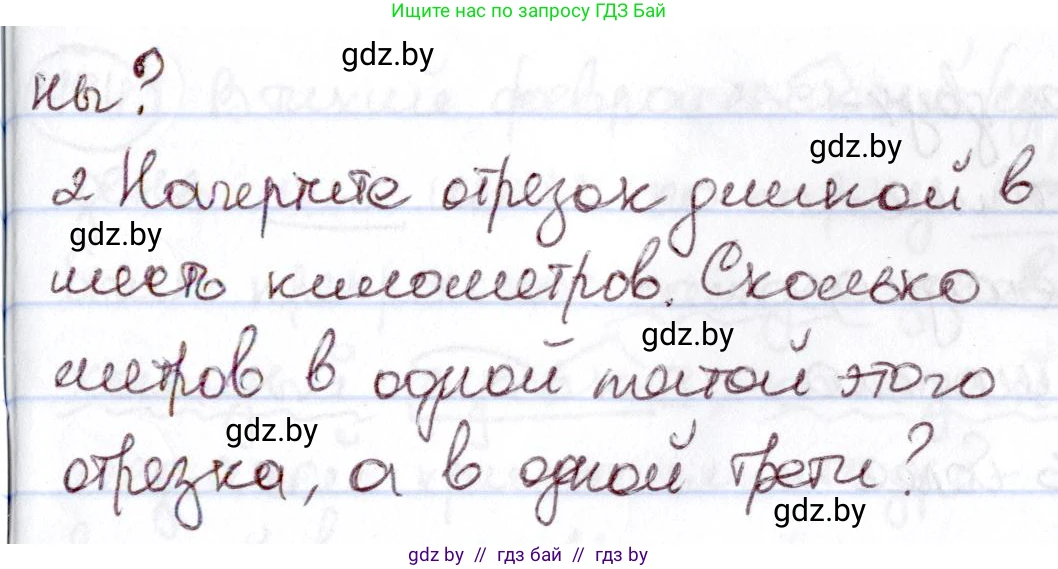 Ищите нас по запросу ГДЗ Бай
gdz.by
ны?
gdz.by
2 Начертите отрезок длиной в
gdz.by
шесть километров. Сколько
gdz.by
метров в одной пятой этого
gdz.by
отрезка, а в одной трети?
gdz.by
gdz.by // гдз бай // гдз by